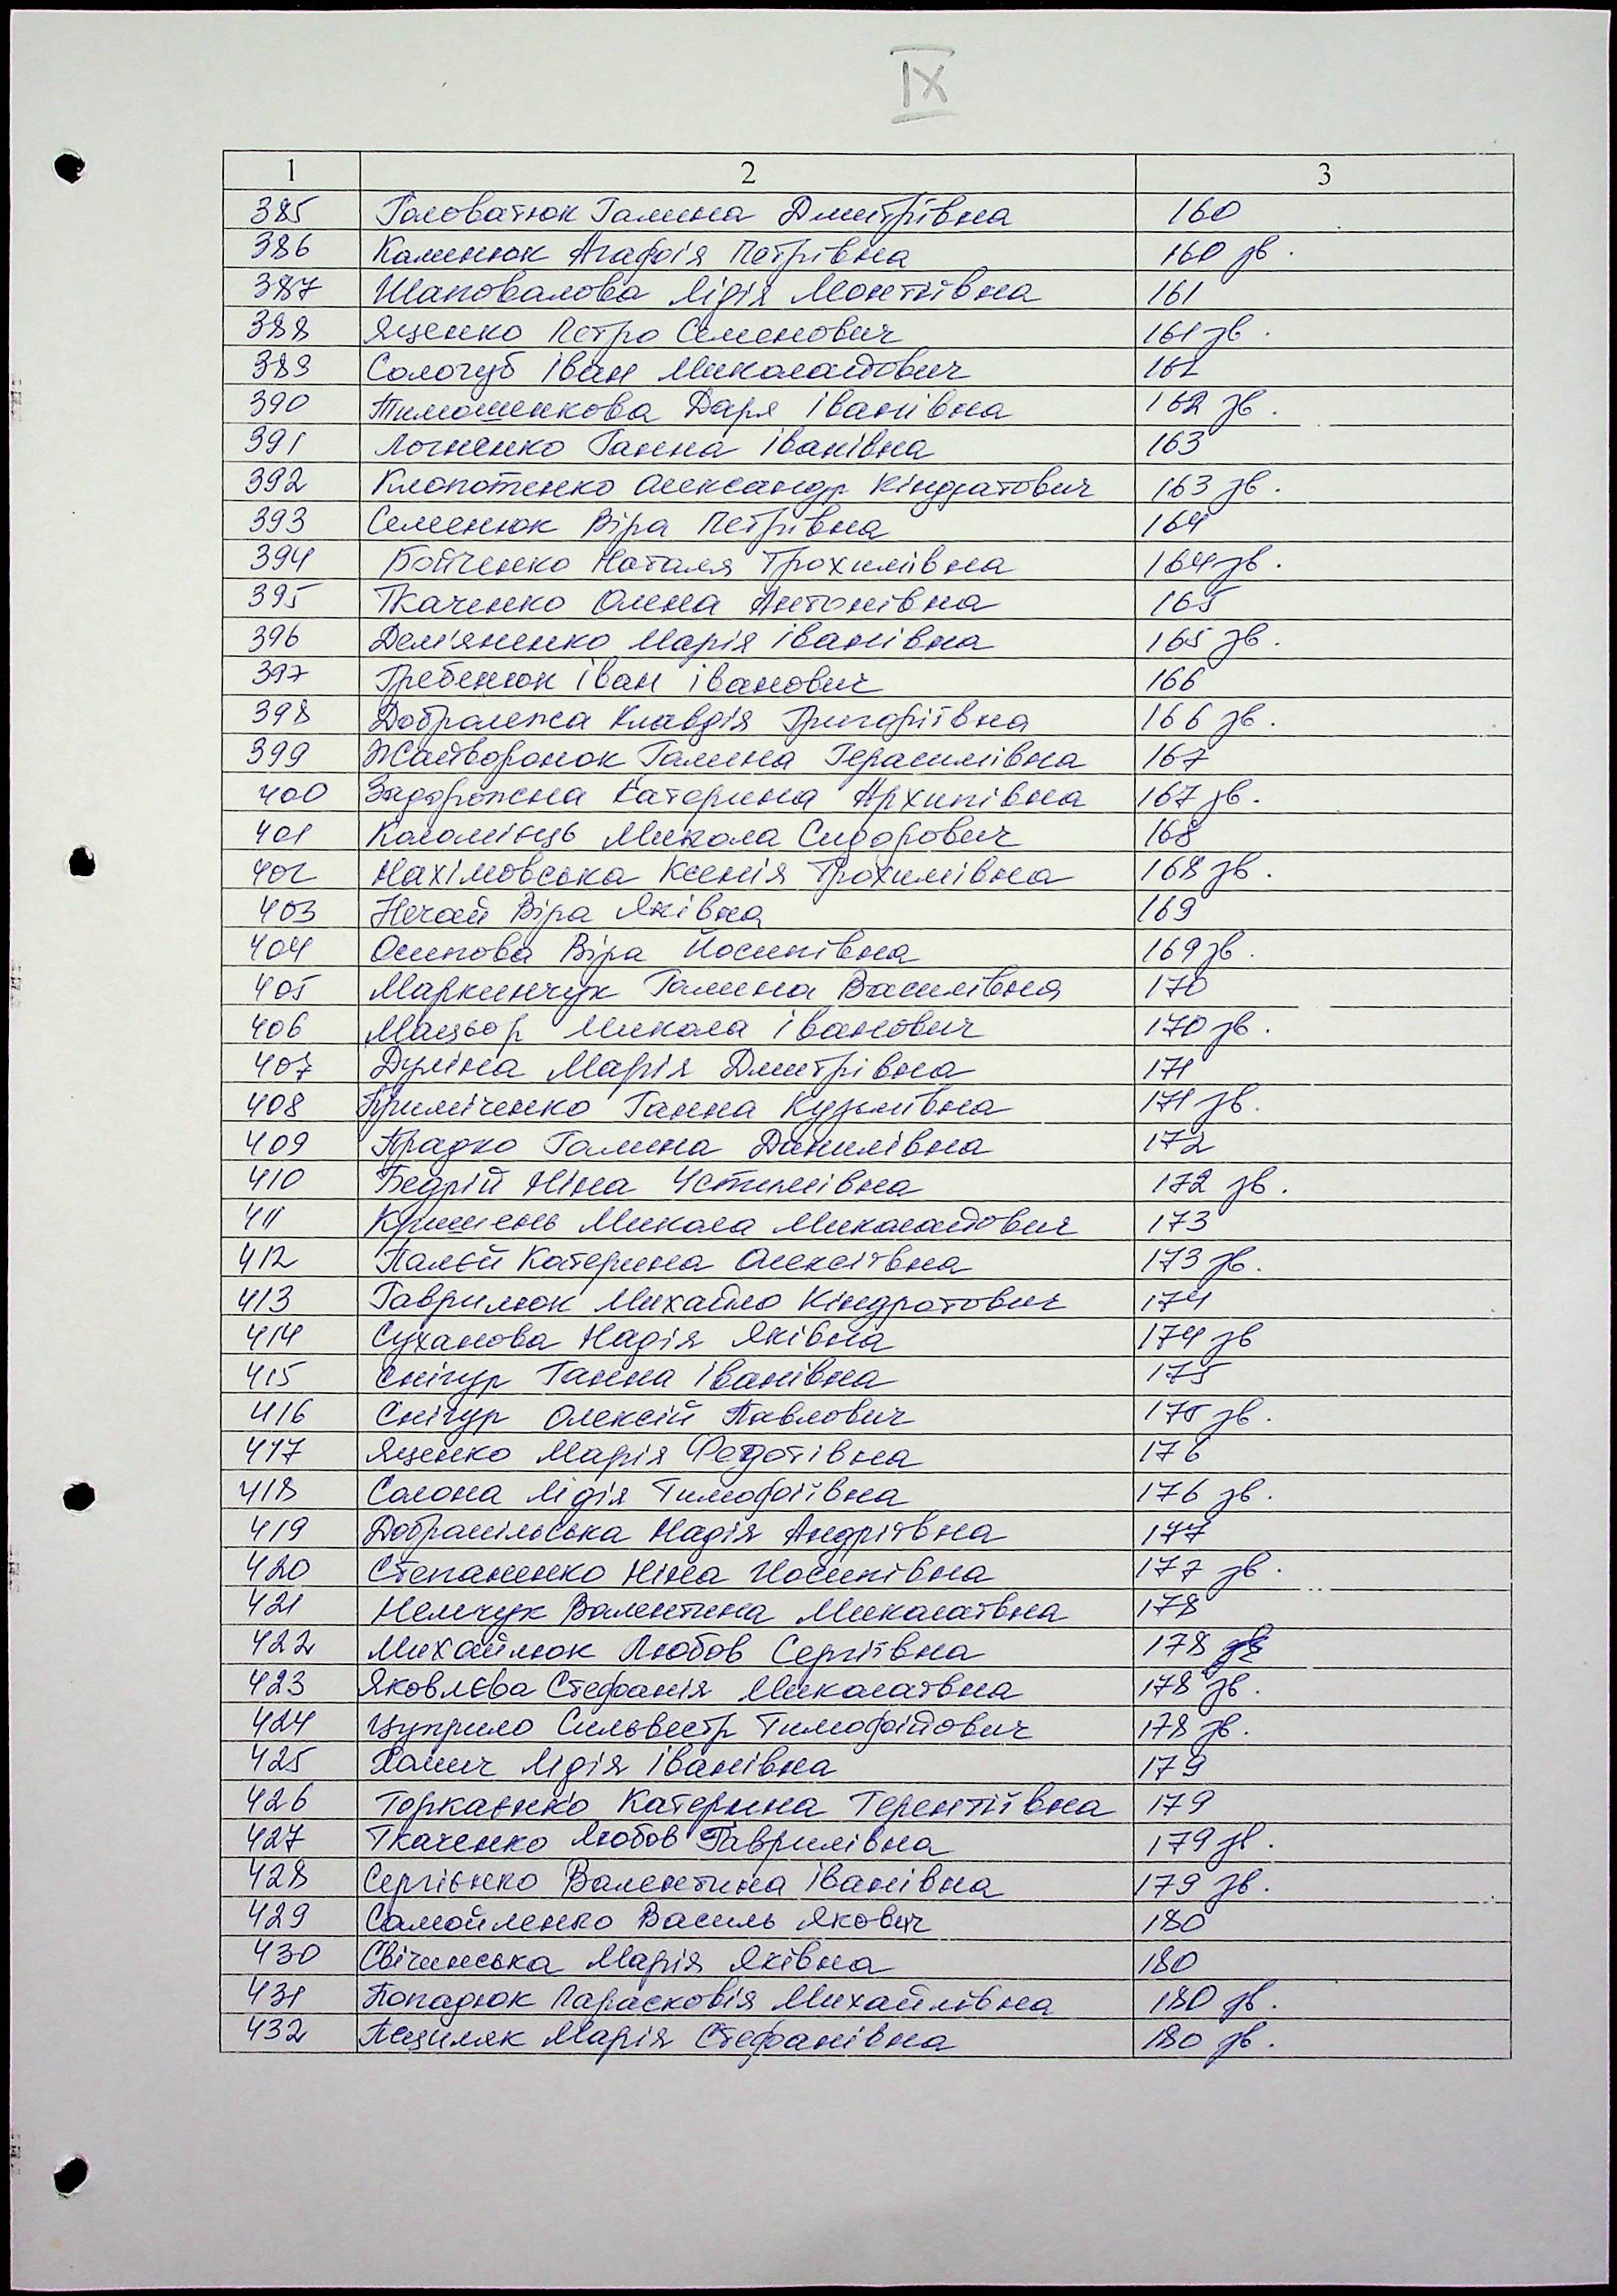 IX
1 2 3
385 Головатюк Галина Дмитрівна 160
386 Каменюк Агафія Петрівна 160 зв.
387 Шаповалова Лідія Монтіївна 161
388 Яценко Петро Семенович 161 зв.
389 Сологуб Іван Миколайович 162
390 Тимошенкова Даря Іванівна 162 зв.
391 Логненко Ганна Іванівна 163
392 Клопотенко Олександр Кіндратович 163 зв.
393 Семенюк Віра Петрівна 164
394 Бойченко Наталя Трохимівна 164 зв.
395 Ткаченко Олена Антонівна 165
396 Дем'яненко Марія Іванівна 165 зв.
397 Гребенюк Іван Іванович 166
398 Добролежа Клавдія Григоріївна 166 зв.
399 Жайворонок Галина Герасимівна 167
400 Задорожна Катерина Архипівна 167 зв.
401 Коломієць Микола Сидорович 168
402 Нахімовська Ксенія Трохимівна 168 зв.
403 Нечай Віра Яківна 169
404 Осипова Віра Йосипівна 169 зв.
405 Маркинчук Галина Василівна 170
406 Мацьор Микола Іванович 170 зв.
407 Дуліна Марія Дмитрівна 171
408 Приміченко Ганна Кузьмівна 171 зв.
409 Прадко Галина Данилівна 172
410 Бедрій Ніна Устимівна 172 зв.
411 Кришень Микола Миколайович 173
412 Палєй Катерина Олексіївна 173 зв.
413 Гаврилюк Михайло Кіндратович 174
414 Суханова Надія Яківна 174 зв
415 Снігур Ганна Іванівна 175
416 Снігур Олексій Павлович 175 зв.
417 Яценко Марія Федотівна 176
418 Солона Лідія Тимофіївна 176 зв.
419 Добропільська Надія Андріївна 177
420 Степаненко Ніна Йосипівна 177 зв.
421 Немчук Валентина Миколаївна 178
422 Михайлюк Любов Сергіївна 178
423 Яковлєва Стефанія Миколаївна 178 зв.
424 Цуприло Сильвестр Тимофійович 178 зв.
425 Халич Лідія Іванівна 179
426 Торкаєнко Катерина Терентіївна 179
427 Ткаченко Любов Гаврилівна 179 зв.
428 Сергієнко Валентина Іванівна 179 зв.
429 Самойленко Василь Якович 180
430 Свічинська Марія Яківна 180
431 Попадюк Парасковія Михайлівна 180 зв.
432 Пациляк Марія Стефанівна 180 зв.